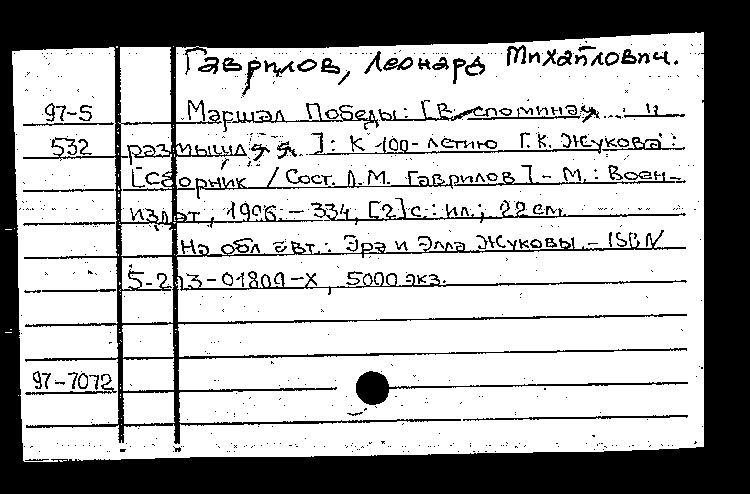 Гаврилов, Леонард Михайлович.
97-5 Маршал Победы: [Вспоминая и
532 размышляя]: К 100-летию Г.К. Жукова:
[Сборник / Сост. Л.М. Гаврилов] - М.: Воен-
издат, 1996. - 334, [2] с.: ил.; 22 см.
На обл. авт.: Эра и Элла Жуковы. - ISBN
5-203-01800-X, 5000 экз.
97-7072